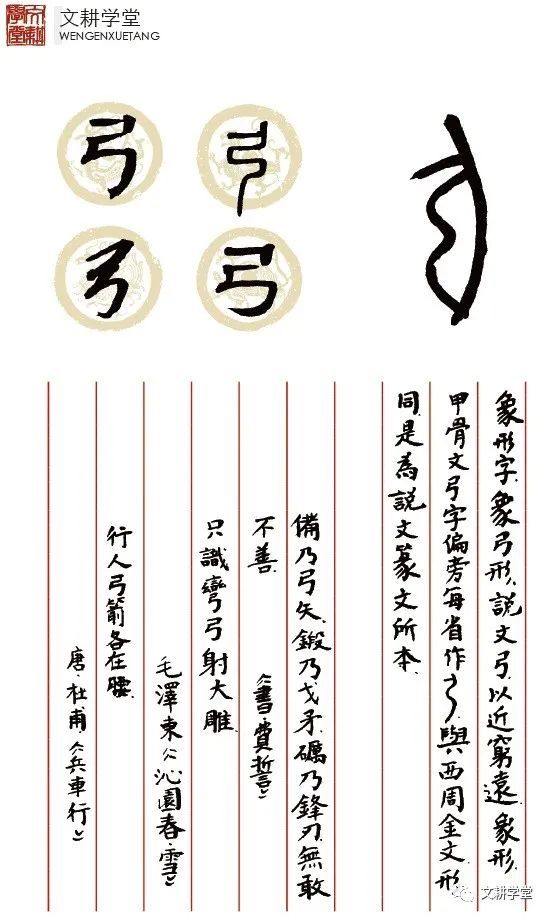 文耕學堂
文耕学堂
WENGENXUETANG
弓
弓 弓
弓 弓
象形字、象弓形、説文弓、以近窮遠、象形、
甲骨文弓字偏旁每省作、與西周金文形
同、是為説文篆文所本、
備乃弓矢、鍛乃戈矛、礪乃鋒刃、無敢
不善、《書·費誓》
只識彎弓射大雕
毛澤東《沁園春·雪》
行人弓箭各在腰、
唐·杜甫《兵車行》
文耕学堂